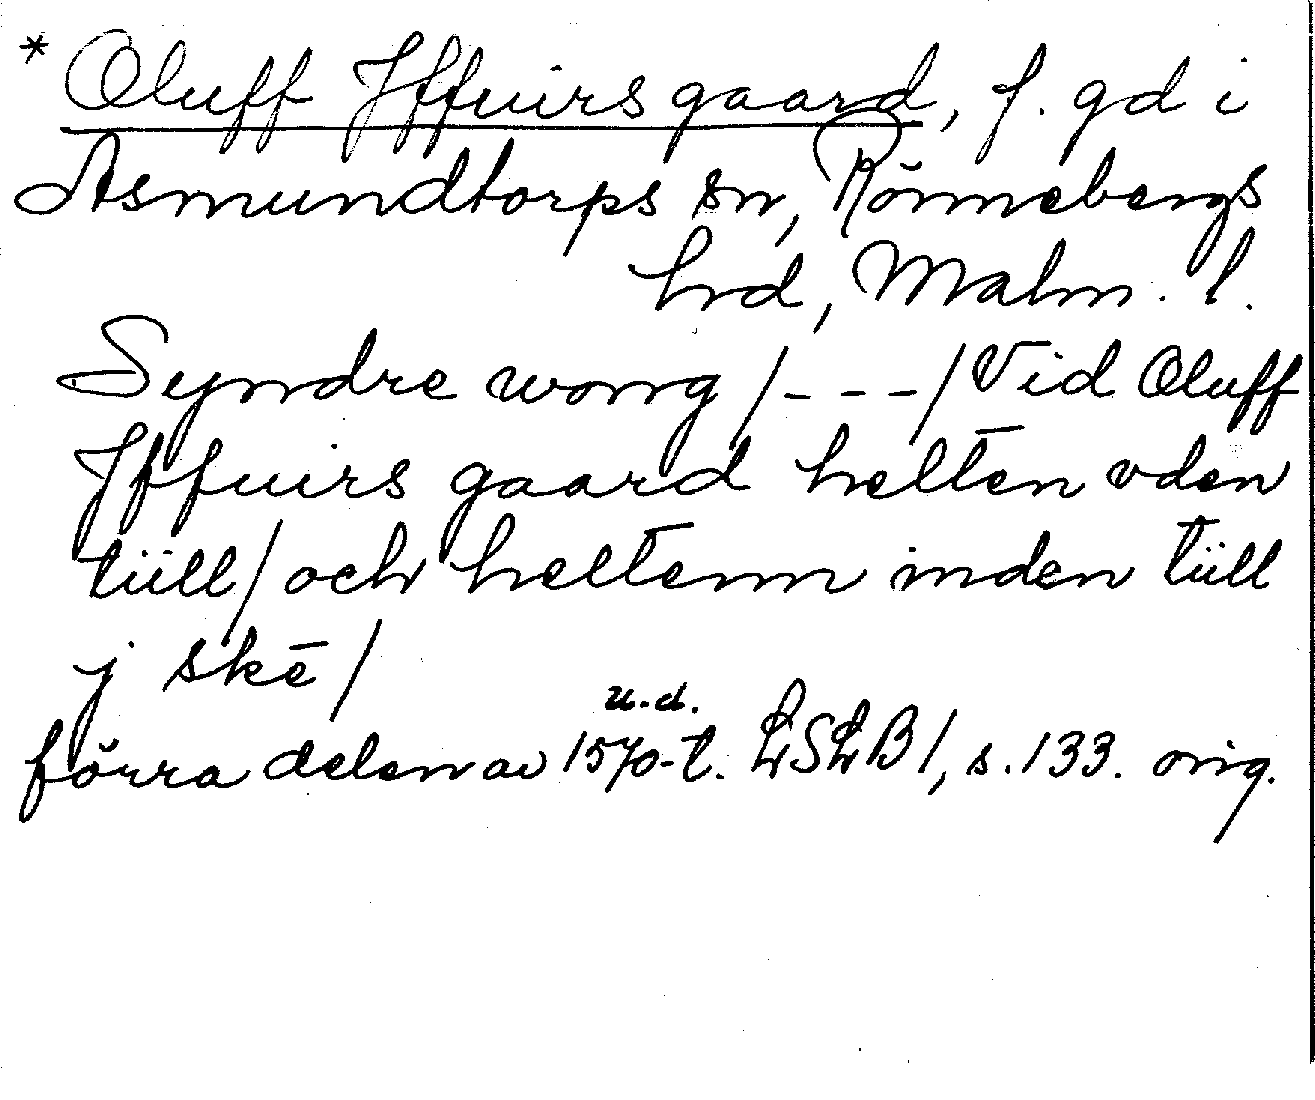 * Oluff Iffuirs gaard, f. gd i
Asmundtorps sn, Rönnebergs
hrd, Malm. l.
Syndre wong /---/ Vid Oluff
Iffuirs gaard helten vden
tüll/ och heltenn inden tüll
j skē/
u.d.
förra delen av 1570-t. LSLB 1, s. 133. orig.